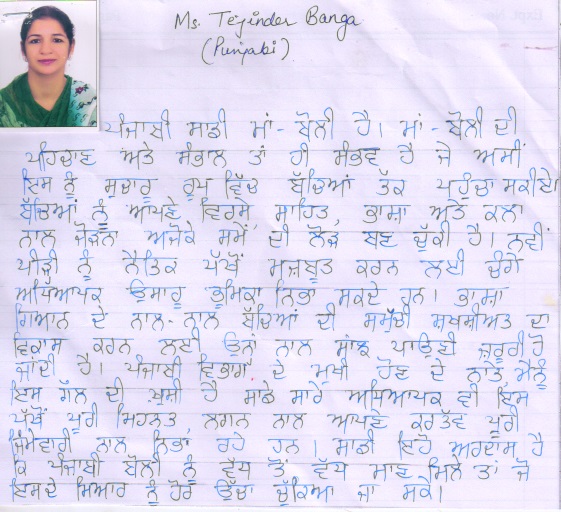 Ms. Tejinder Banga
(Punjabi)
ਪੰਜਾਬੀ ਸਾਡੀ ਮਾਂ-ਬੋਲੀ ਹੈ। ਮਾਂ-ਬੋਲੀ ਦੀ
ਪਹਿਚਾਣ ਅਤੇ ਸੰਭਾਲ ਤਾਂ ਹੀ ਸੰਭਵ ਹੈ ਜੇ ਅਸੀਂ
ਇਸ ਨੂੰ ਸੁਚਾਰੂ ਰੂਪ ਵਿੱਚ ਬੱਚਿਆਂ ਤੱਕ ਪਹੁੰਚਾ ਸਕੀਏ।
ਬੱਚਿਆਂ ਨੂੰ ਆਪਣੇ ਵਿਰਸੇ, ਸਾਹਿਤ, ਭਾਸ਼ਾ ਅਤੇ ਕਲਾ
ਨਾਲ ਜੋੜਨਾ ਅਜੋਕੇ ਸਮੇਂ ਦੀ ਲੋੜ ਬਣ ਚੁੱਕੀ ਹੈ। ਨਵੀਂ
ਪੀੜ੍ਹੀ ਨੂੰ ਨੈਤਿਕ ਪੱਖੋਂ ਮਜ਼ਬੂਤ ਕਰਨ ਲਈ ਚੰਗੇ
ਅਧਿਆਪਕ ਉਸਾਰੂ ਭੂਮਿਕਾ ਨਿਭਾ ਸਕਦੇ ਹਨ। ਭਾਸ਼ਾ
ਗਿਆਨ ਦੇ ਨਾਲ-ਨਾਲ ਬੱਚਿਆਂ ਦੀ ਸਮੁੱਚੀ ਸ਼ਖ਼ਸੀਅਤ ਦਾ
ਵਿਕਾਸ ਕਰਨ ਲਈ ਉਨਾਂ ਨਾਲ ਸਾਂਝ ਪਾਉਣੀ ਜ਼ਰੂਰੀ ਹੋ
ਜਾਂਦੀ ਹੈ। ਪੰਜਾਬੀ ਵਿਭਾਗ ਦੇ ਮੁਖੀ ਹੋਣ ਦੇ ਨਾਤੇ ਮੈਨੂੰ
ਇਸ ਗੱਲ ਦੀ ਖੁਸ਼ੀ ਹੈ ਸਾਡੇ ਸਾਰੇ ਅਧਿਆਪਕ ਵੀ ਇਸ
ਪੱਖੋਂ ਪੂਰੀ ਮਿਹਨਤ, ਲਗਨ ਨਾਲ ਆਪਣੇ ਕਰਤੱਵ ਪੂਰੀ
ਜਿੰਮੇਵਾਰੀ ਨਾਲ ਨਿਭਾ ਰਹੇ ਹਨ। ਸਾਡੀ ਇਹੋ ਅਰਦਾਸ ਹੈ
ਕਿ ਪੰਜਾਬੀ ਬੋਲੀ ਨੂੰ ਵੱਧ ਤੋਂ ਵੱਧ ਮਾਣ ਮਿਲੇ ਤਾਂ ਜੋ
ਇਸਦੇ ਮਿਆਰ ਨੂੰ ਹੋਰ ਉੱਚਾ ਚੁੱਕਿਆ ਜਾ ਸਕੇ।